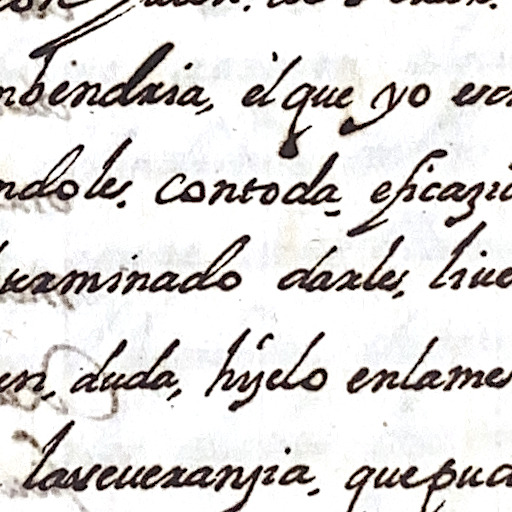 nbendria, el que yo escr
ndoles. con toda eficazi
rminado darles, liue
en, duda, hijelo enlame
lasseueranzia, que pud